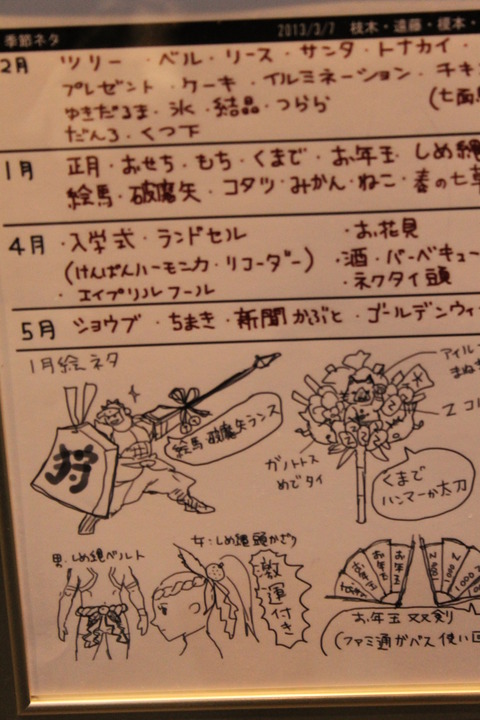 季節ネタ 2013/3/7 枝木・遠藤・榎本・
2月 ツリー・ベル・リース・サンタ・トナカイ・
プレゼント・ケーキ・イルミネーション・チキ
ゆきだるま・氷・結晶・つらら (七面
だんろ・くつ下
1月 正月・おせち・もち・くまで・お年玉 しめ縄
絵馬・破魔矢・コタツ・みかん・ねこ・春の七草
4月 ・入学式・ランドセル ・お花見
(けんばんハーモニカ・リコーダー) ・酒・バーベキュー
・エイプリルフール ・ネクタイ頭
5月 ショウブ・ちまき・新聞かぶと・ゴールデンウィ
1月絵ネタ
アイル
まねき
狩
絵馬・破魔矢ランス
Zコ
ガノトトス
めでタイ
くまで
ハンマーか太刀
男:しめ縄ベルト
女:しめ縄頭かざり
激運付き
お年玉
お年玉
1000
お年玉双剣
(ファミ通がパス使い回